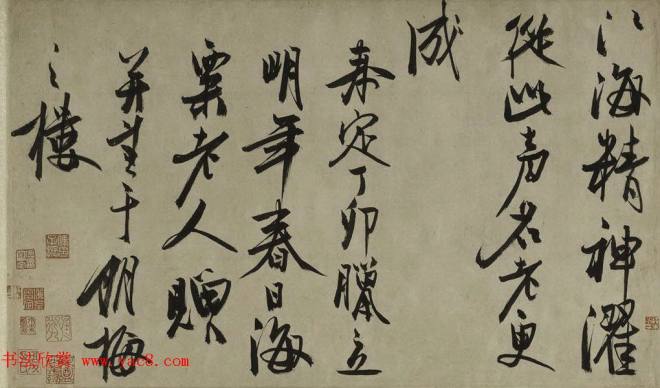 江海精神濯
從此聲名老更
成
泰定丁卯臘立
明年春日海
粟老人贈
并書于朋梅
之樓
书法欣赏 www.yac8.com